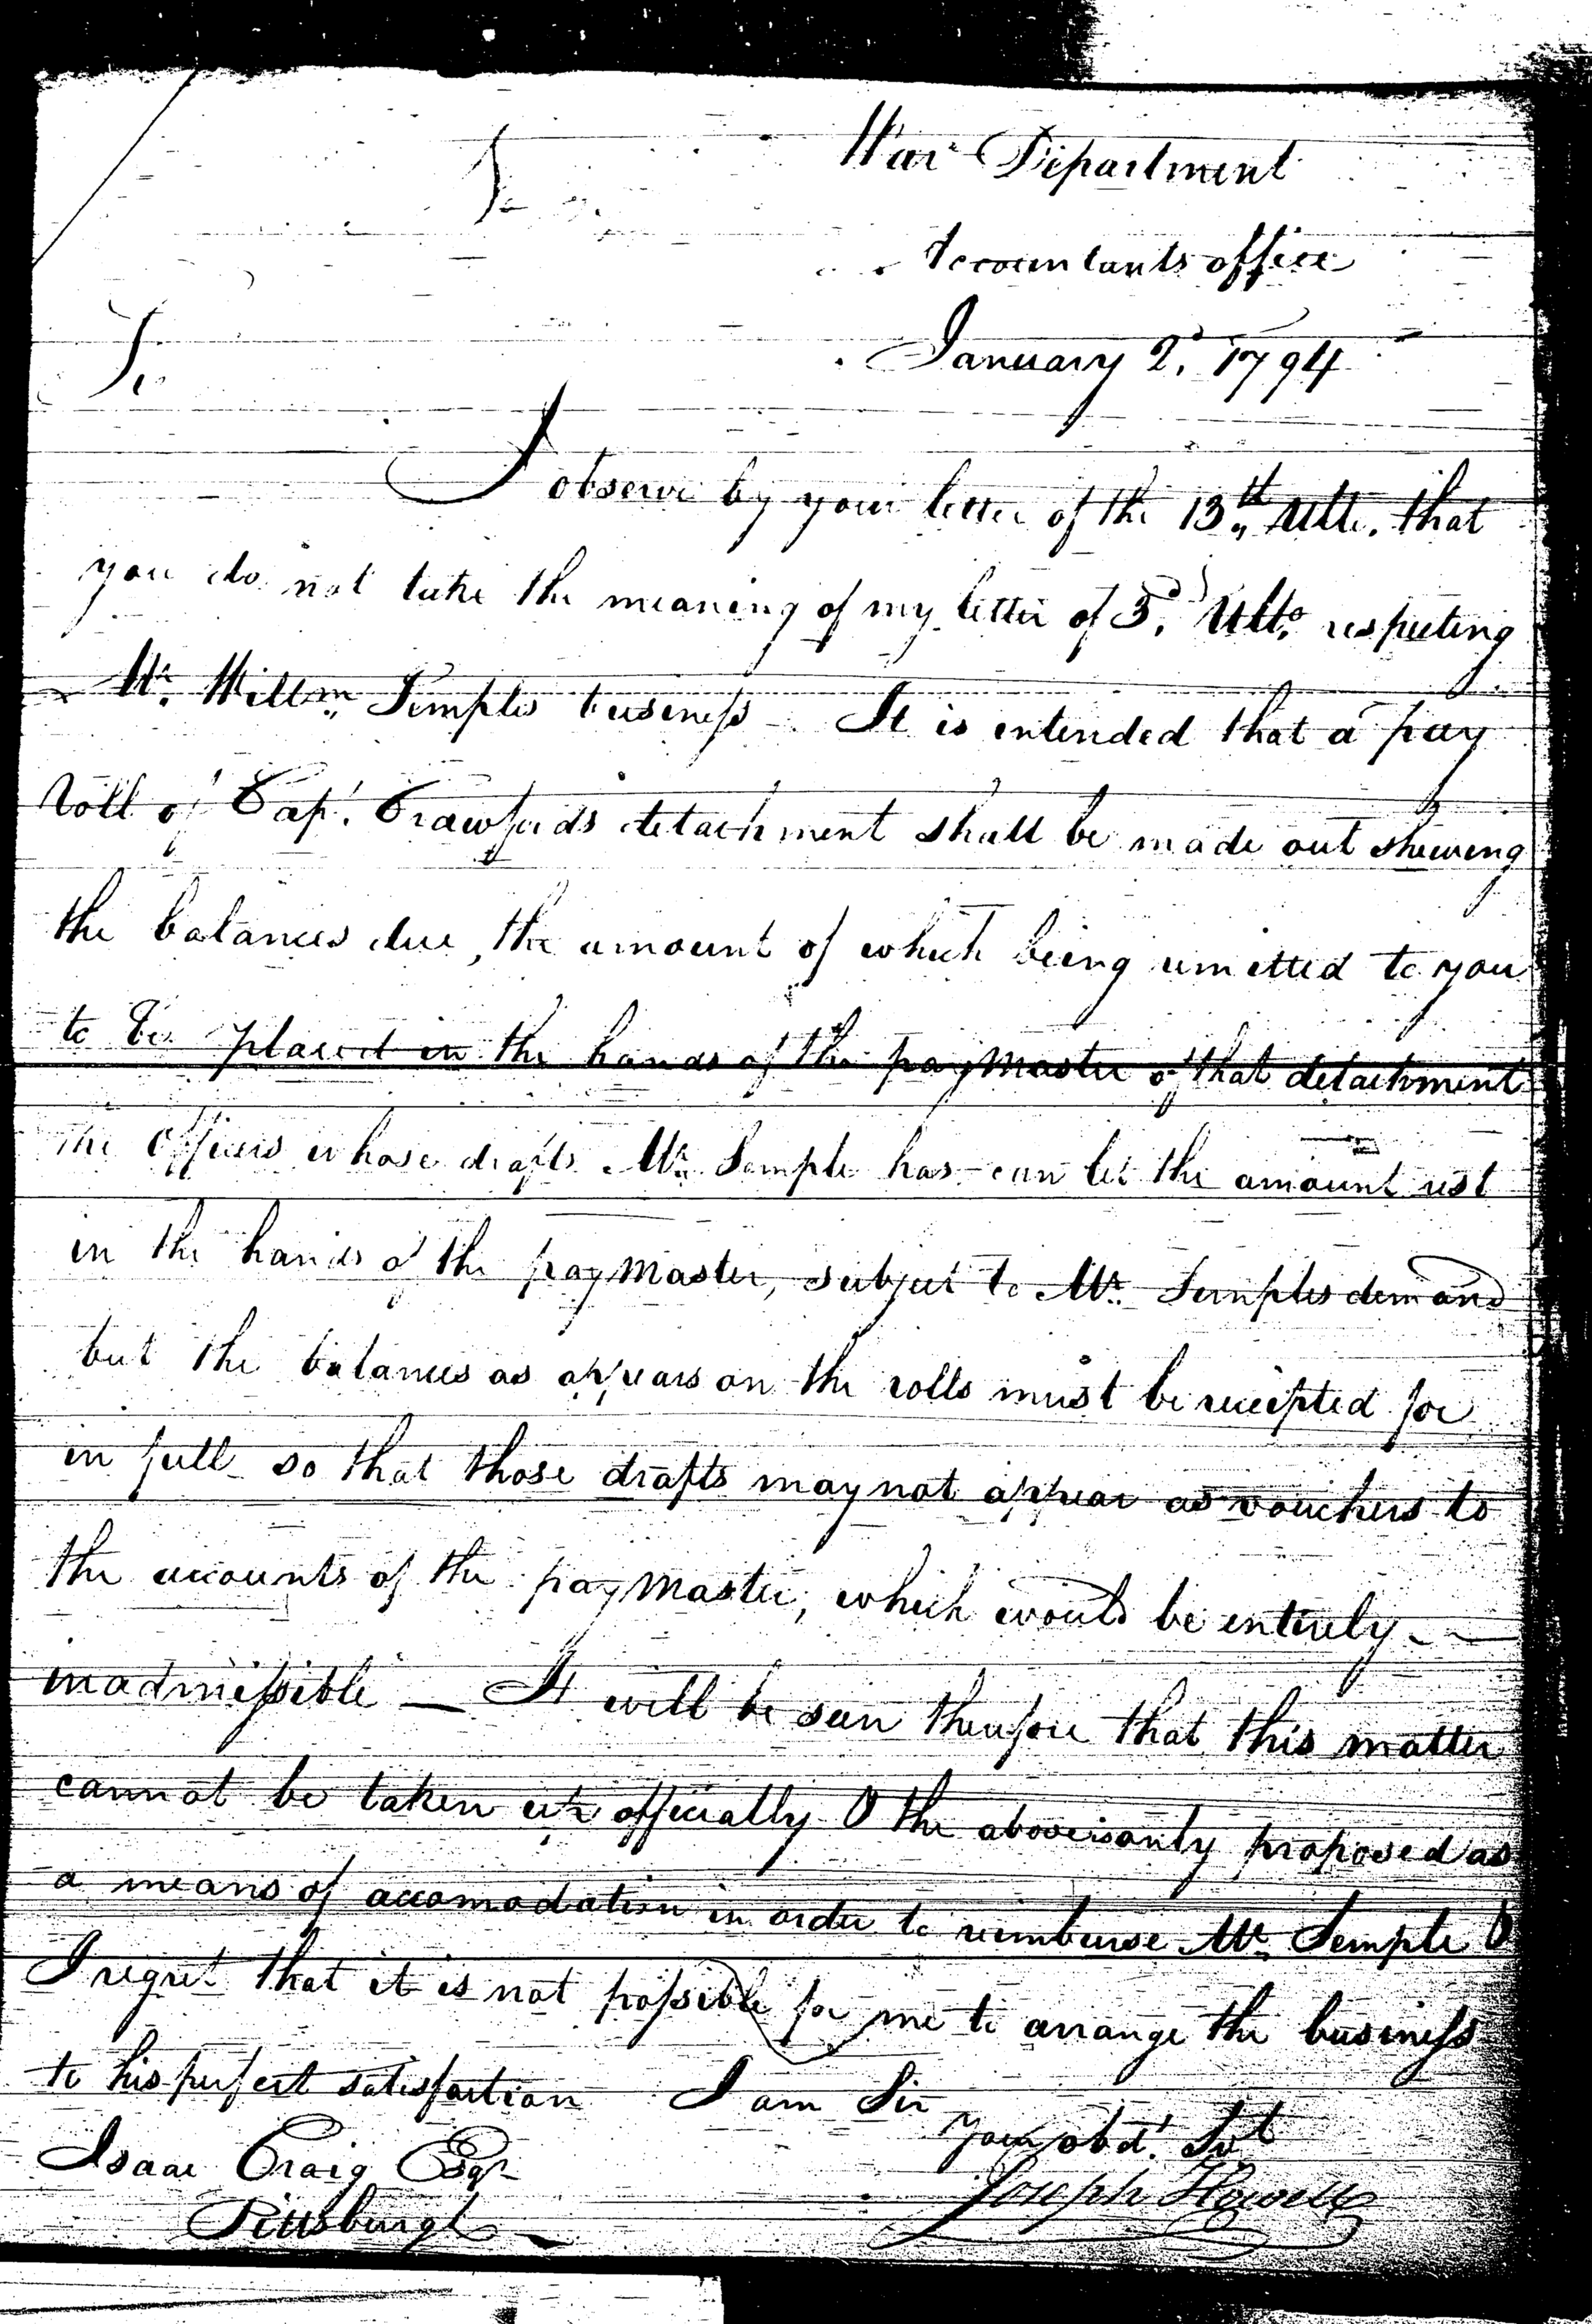 War Department
Accountants office
January 2d. 1794
Sir
I observe by your letter of the 13th,, Ulto. that
you do not take the meaning of my letter of 3d. Ulto. respecting
Mr. Willm,, Semples business - It is intended that a pay
roll of Capt. Crawfords detachment shall be made out shewing
the balances due, the amount of which being remitted to you
to be placed in the hands of the paymaster of that detachment
the Officers whose drafts Mr. Semple has - can let the amount rest
in the hands of the paymaster, subject to Mr. Semples demand
but the balances as appears on the rolls must be receipted for
in full so that those drafts may not appear as vouchers to
the accounts of the paymaster, which would be entirely
inadmissible — It will be seen therefore that this matter
cannot be taken up officially & the above is only proposed as
a means of accomodation in order to reimburse Mr. Semple &
I regret that it is not possible for me to arrange the business
to his perfect satisfaction I am Sir
Your obdt. Svt
Isaac Craig Esqr
Joseph Howell
Pittsburgh